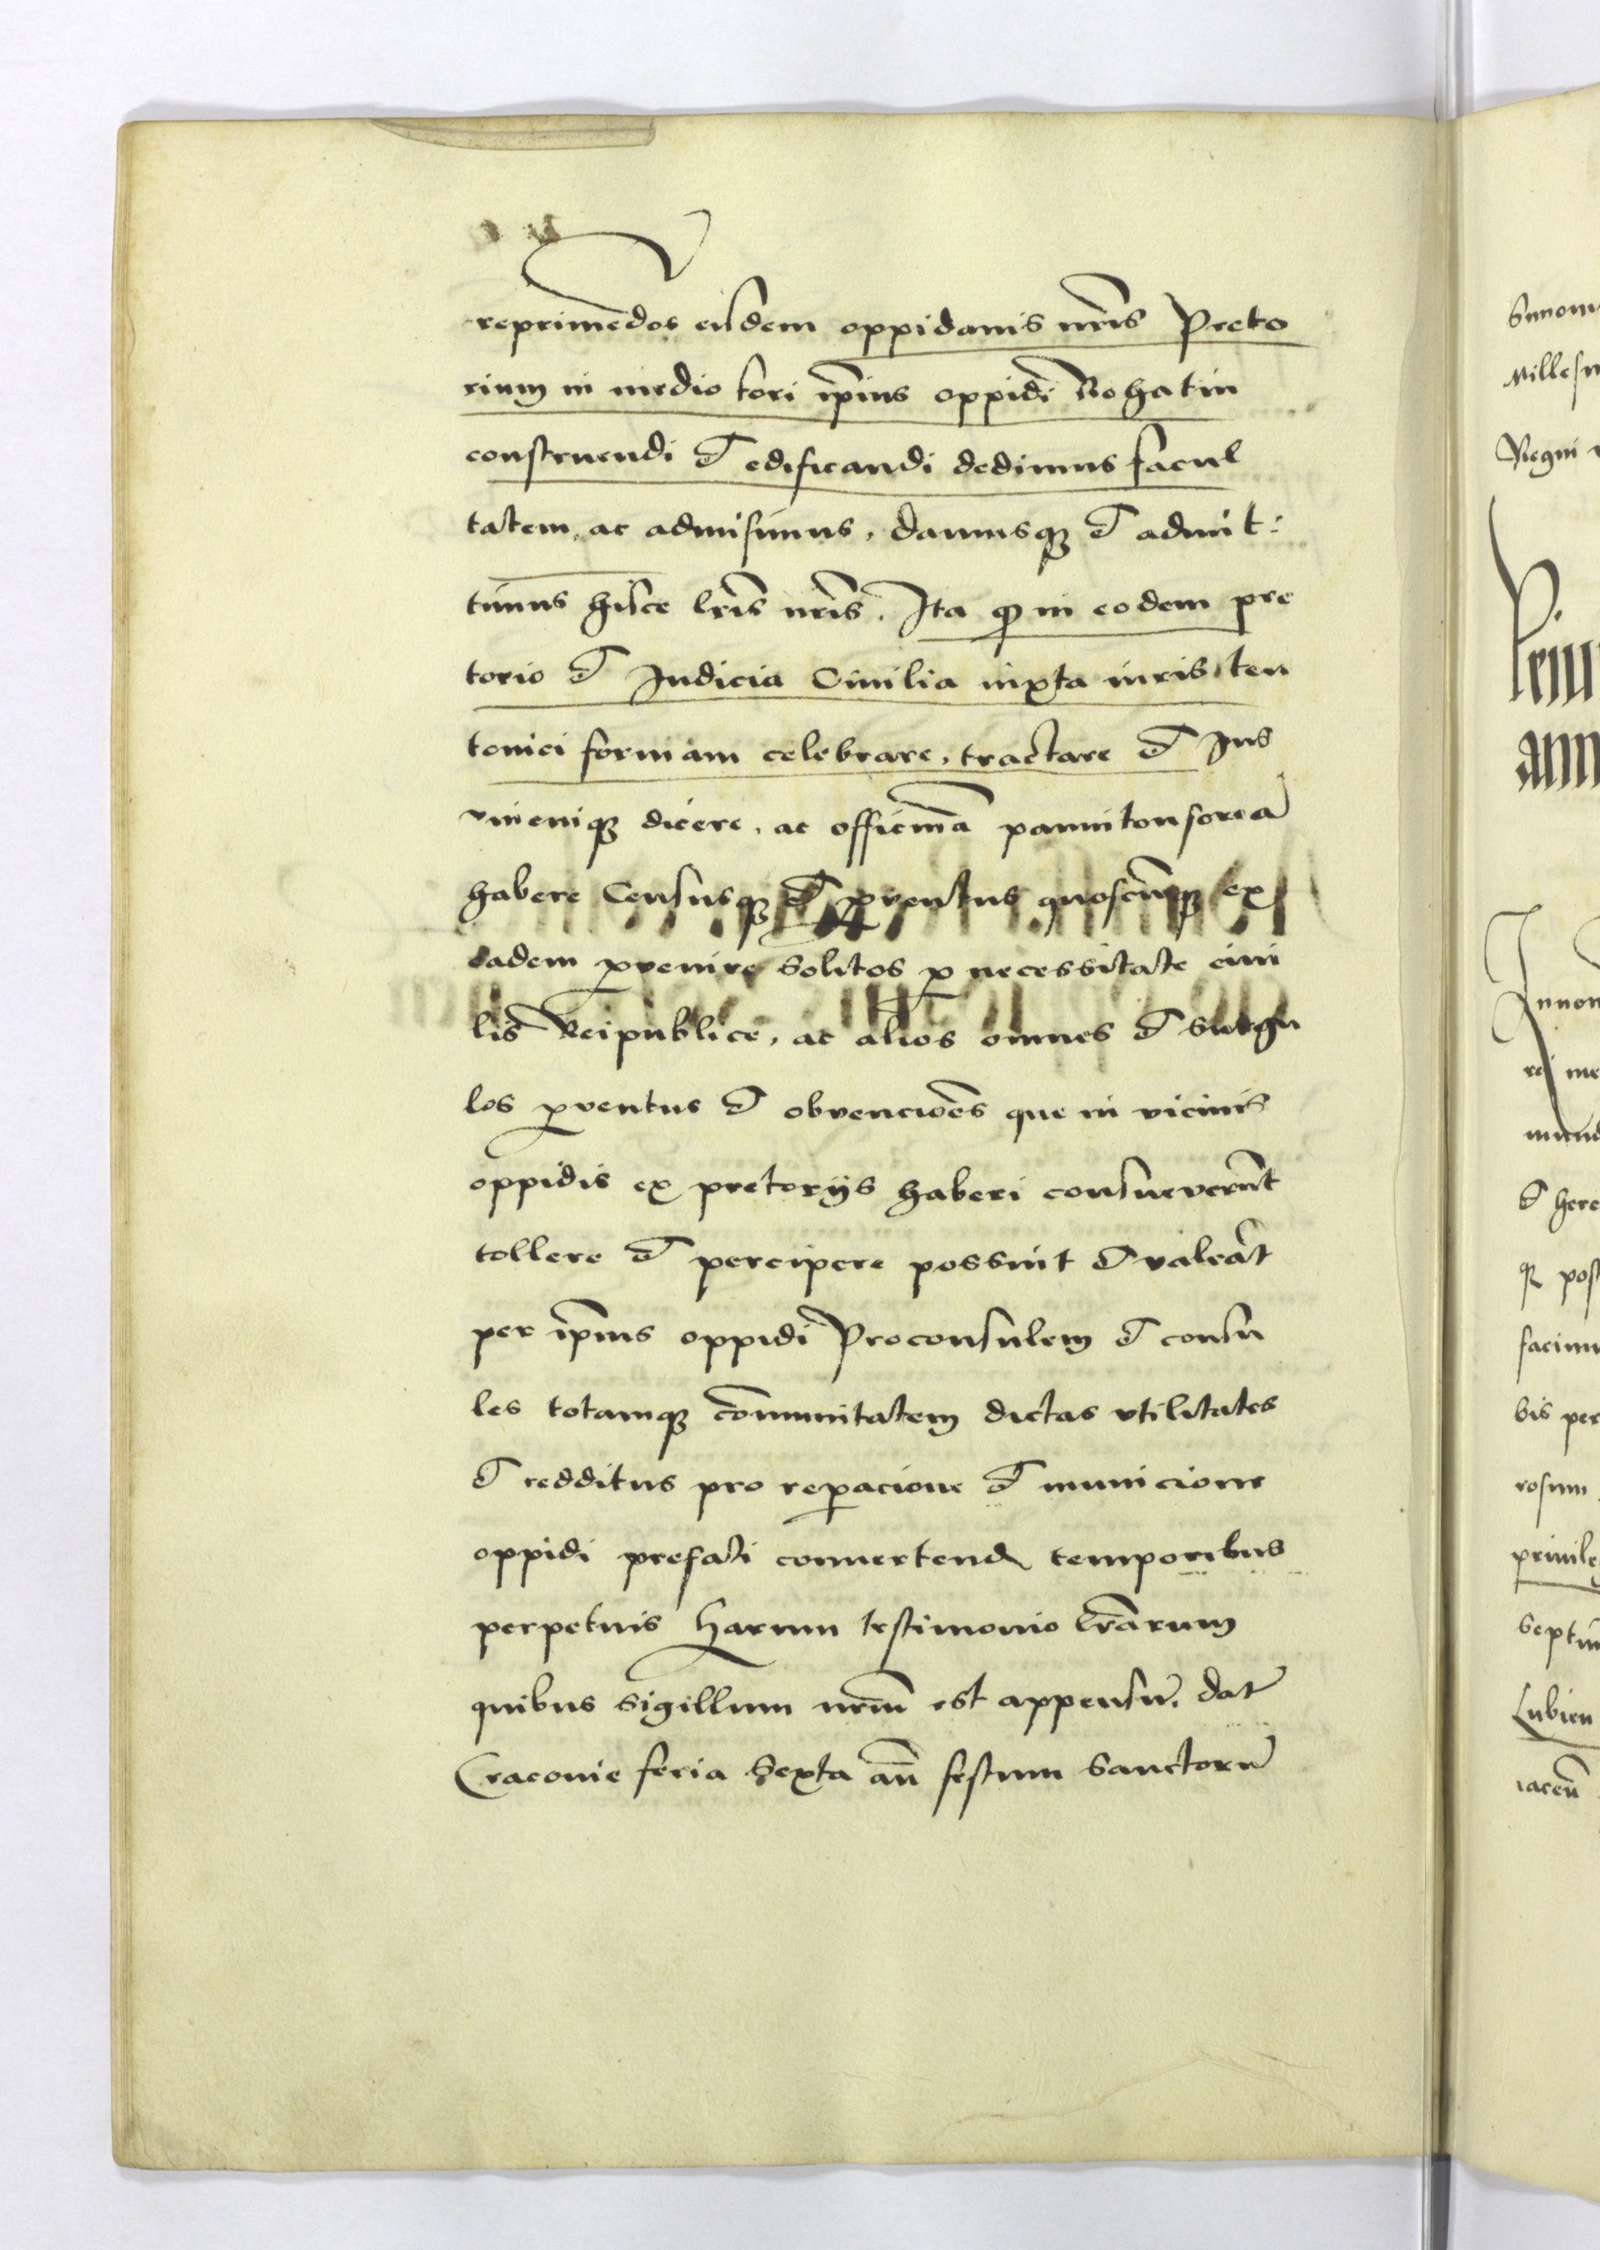 reprimēdos eisdem oppidanis nr̄is Preto
rium in medio fori ip̄ius oppidi Rohatin
construendi et edificandi dedimus facul
tatem, ac admisimus, damusqꝫ et admit:
timus hisce lr̄is nr̄is. Ita ꝙ in eodem pre
torio et Judicia Ciuilia iuxta iuris teu
tonici formam celebrare, tractare et Jus
vnicuiqꝫ dicere, ac officinā pannitonsoreā
habere Censusqꝫ et ꝓuentus quoscūqꝫ ex
eadem ꝓuenire solitos ꝓ necessitate ciui
lis Reipublice, ac alios omnes et singu
los ꝓuentus et obvenciōes que in vicinis
oppidis ex pretorijs haberi consueverūt
tollere et percipere possint et valeāt
per ip̄ius oppidi Proconsulem et consu
les totamqꝫ cōmunitatem dictas vtilitates
et redditus pro reꝑacione et municione
oppidi prefati conuertend temporibus
perpetuis Harum testimonio lr̄arum
quibus sigillum nr̄um est appensū. dat
Cracouie feria sexta an̄ festum Sanctorū
Millesi
Regni
Lubien